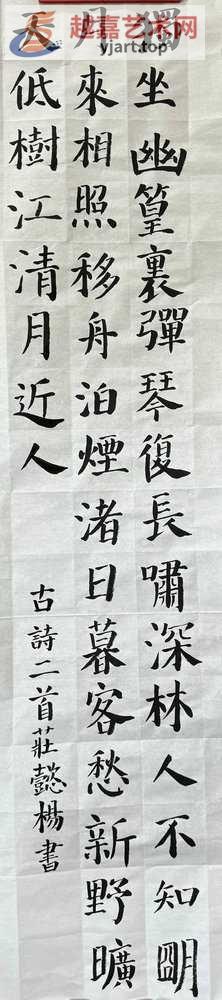 越嘉艺术网
yjart.top
獨坐幽篁裏彈琴復長嘯深林人不知明
月來相照移舟泊煙渚日暮客愁新野曠
天低樹江清月近人
古詩二首莊懿楊書